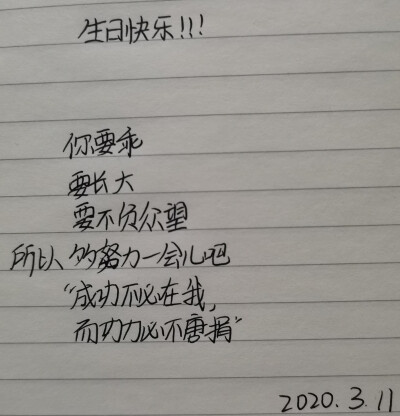 生日快乐!!!
你要乖
要长大
要不负众望
所以 的努力一会儿吧
"成功不必在我,
而功力必不唐捐"
2020.3.11